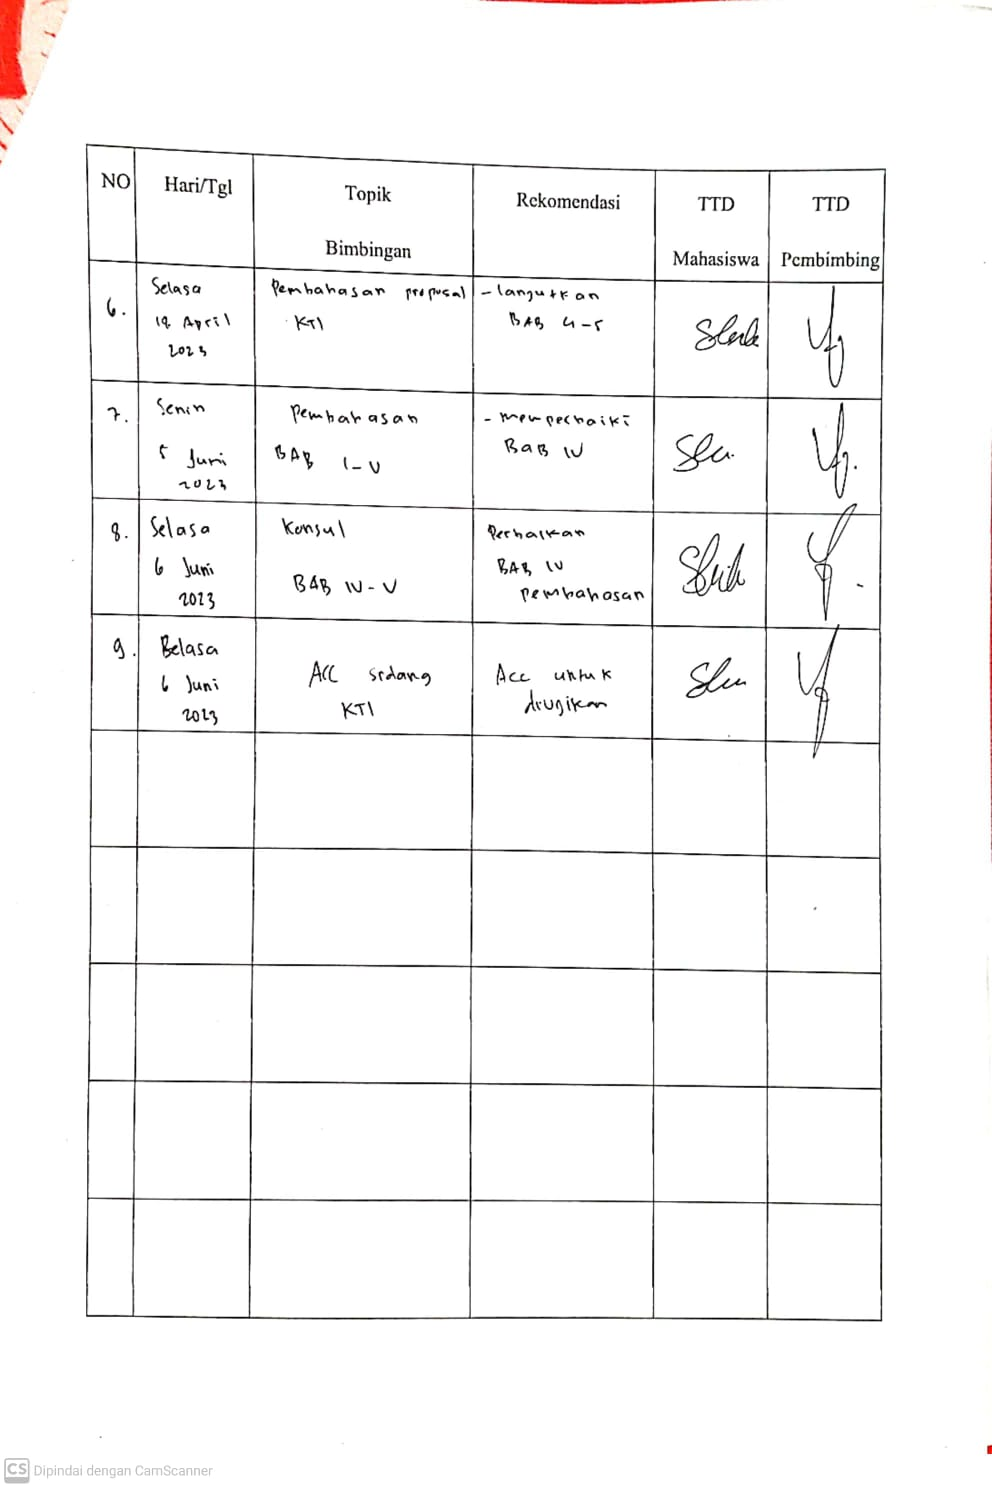 NO
Hari/Tgl
Topik
Bimbingan
Rekomendasi
TTD
Mahasiswa
TTD
Pembimbing
6.
Selasa
18 April
2023
Pembahasan proposal
KTI
- lanjutkan
BAB 4-5
7.
Senin
5 Juni
2023
Pembahasan
BAB I-V
- memperbaiki
BAB IV
8.
Selasa
6 Juni
2023
Konsul
BAB IV-V
Perbaikan
BAB IV
pembahasan
9.
Belasa
6 Juni
2023
ACC sidang
KTI
Acc untuk
diujikan
CS Dipindai dengan CamScanner